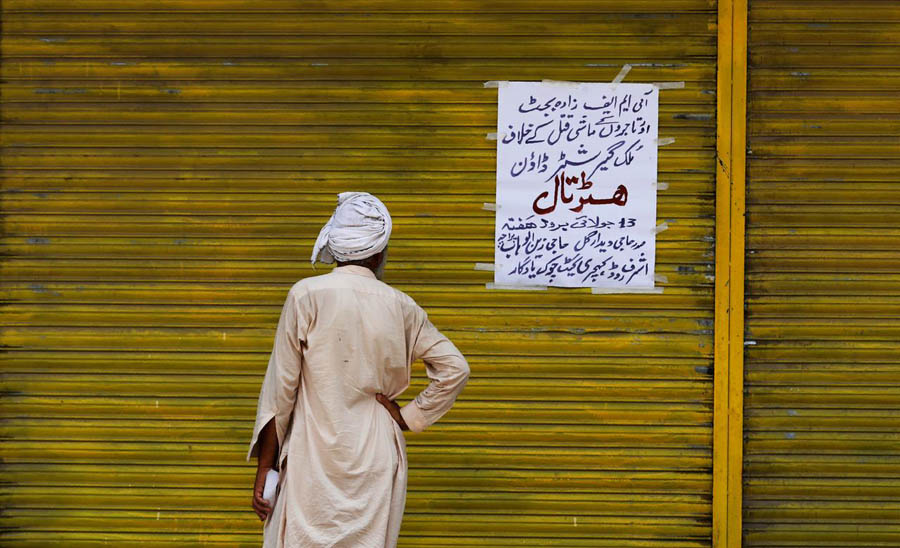 آئی ایم ایف زادہ بجٹ
اور تاجروں کے معاشی قتل کے خلاف
ملک گیر شٹر ڈاؤن
ھڑتال
13 جولائی بروز ھفتہ
صدر حاجی دیدار گل حاجی زین الوہاب
اشرف روڈ کچہری گیٹ چوک یادگار